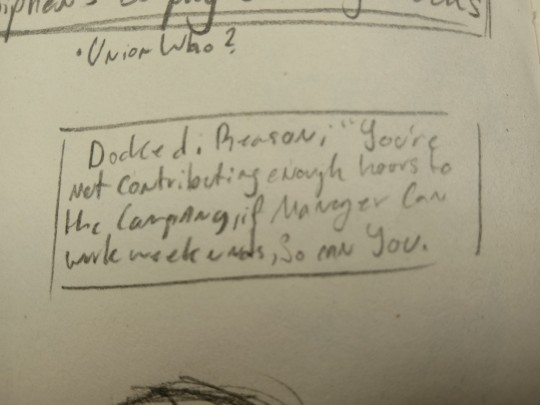 •Union Who?
Docked. Reason; "You're
not contributing enough hours to
the Campang, if Manager can
work weekends, So can You.